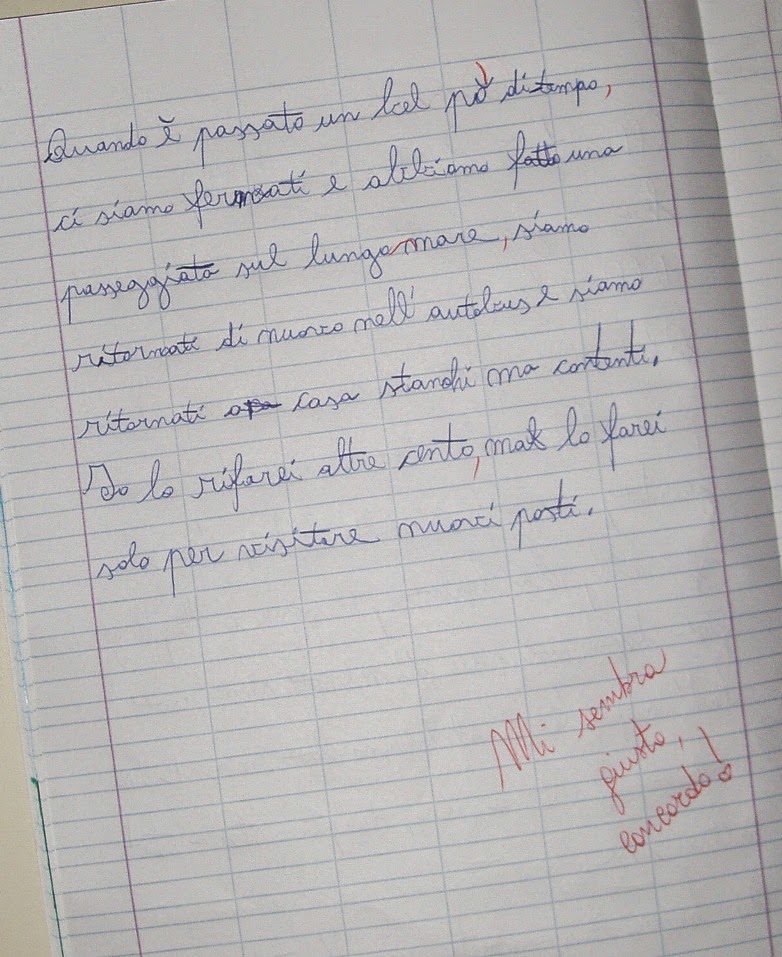 Quando è passato un bel pò di tempo,
ci siamo fermati e abbiamo fatto una
passeggiata sul lungomare, siamo
ritornati di nuovo nell'autobus e siamo
ritornati a casa stanchi ma contenti.
Io lo rifarei altre cento, ma lo farei
solo per visitare nuovi posti.
Mi sembra
giusto,
concordo!